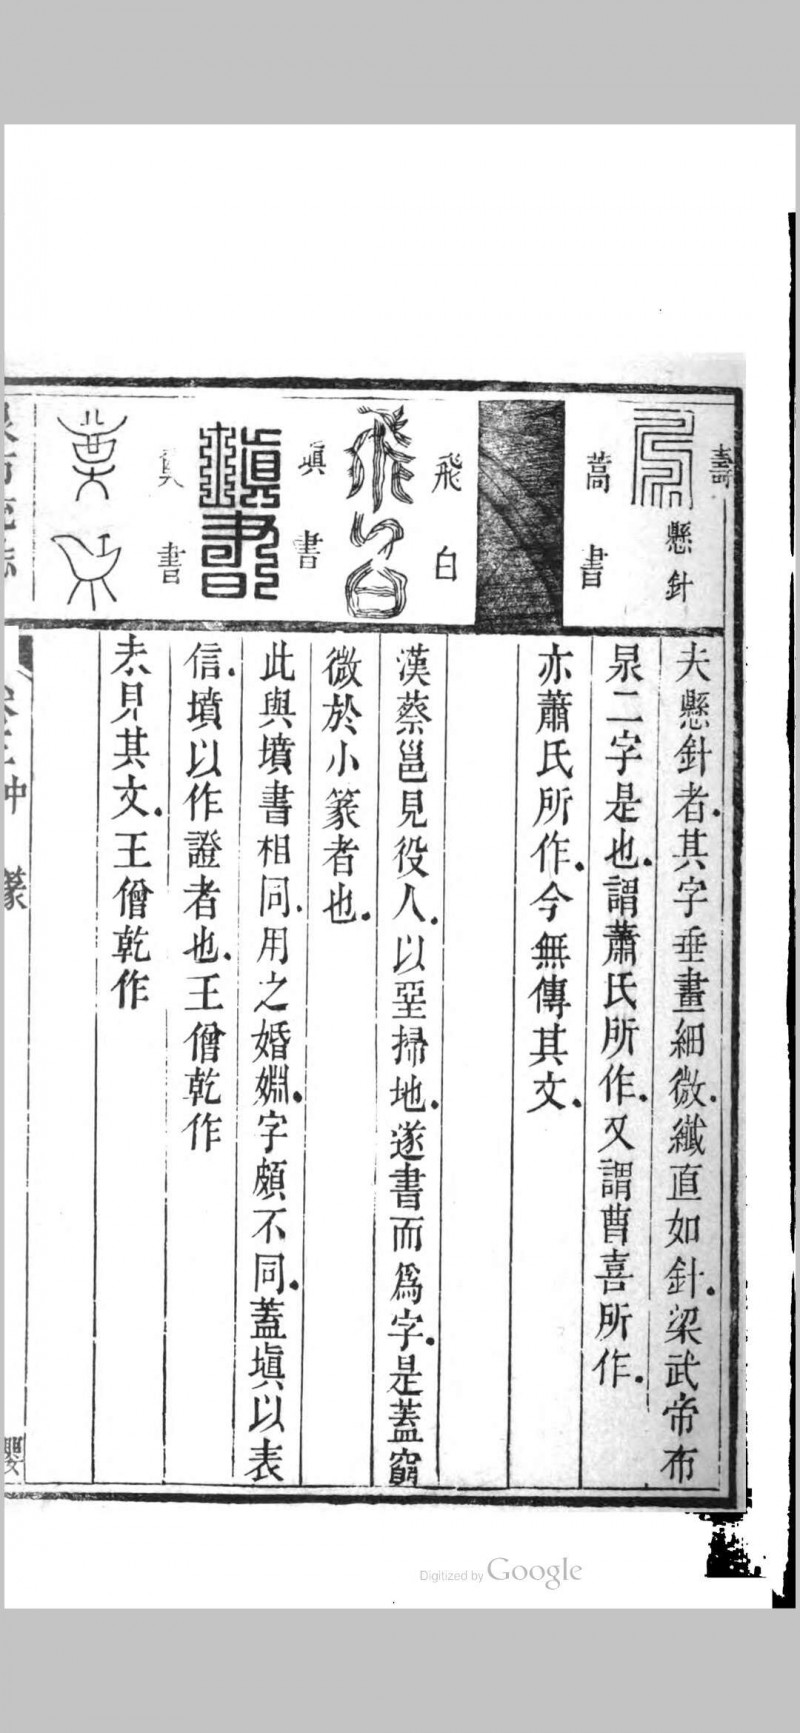 壽
懸針
夫懸針者其字垂畫細微纖直如針梁武帝布
泉二字是也謂蕭氏所作又謂曹喜所作
蒿書
亦蕭氏所作今無傳其文
飛白
漢蔡邕見役人以堊掃地遂書而爲字是蓋窮
微於小篆者也
塡書
此與墳書相同用之婚婣字頗不同蓋塡以表
信墳以作證者也王僧乾作
書
未見其文王僧乾作
篆
Digitized by Google